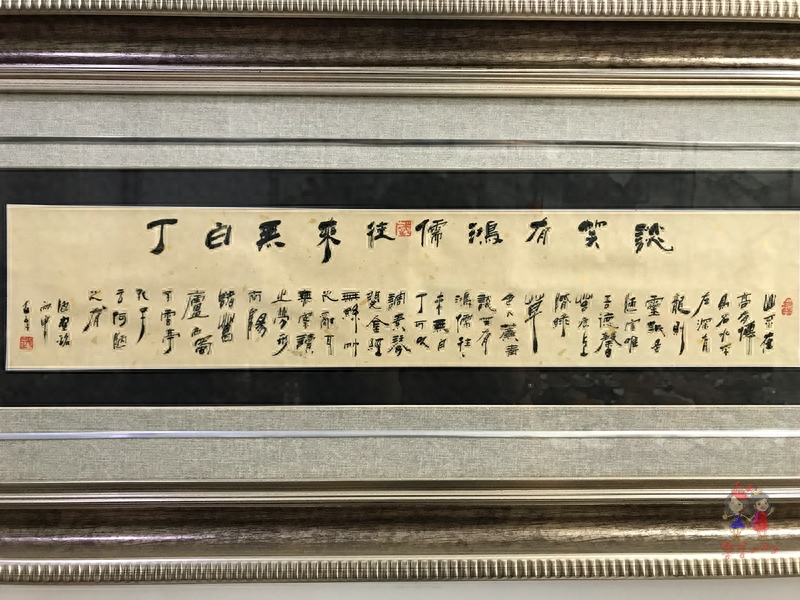 談笑有鴻儒往來無白丁
山不在
高有僊
則名水不
在深有
龍則
靈斯是
陋室惟
吾德馨
苔痕上
階綠
草
色入簾青
談笑有
鴻儒往
來無白
丁可以
調素琴
閱金經
無絲竹
之亂耳
無案牘
之勞形
南陽
諸葛
廬西蜀
子雲亭
孔子
云何陋
之有
陋室銘
丙申